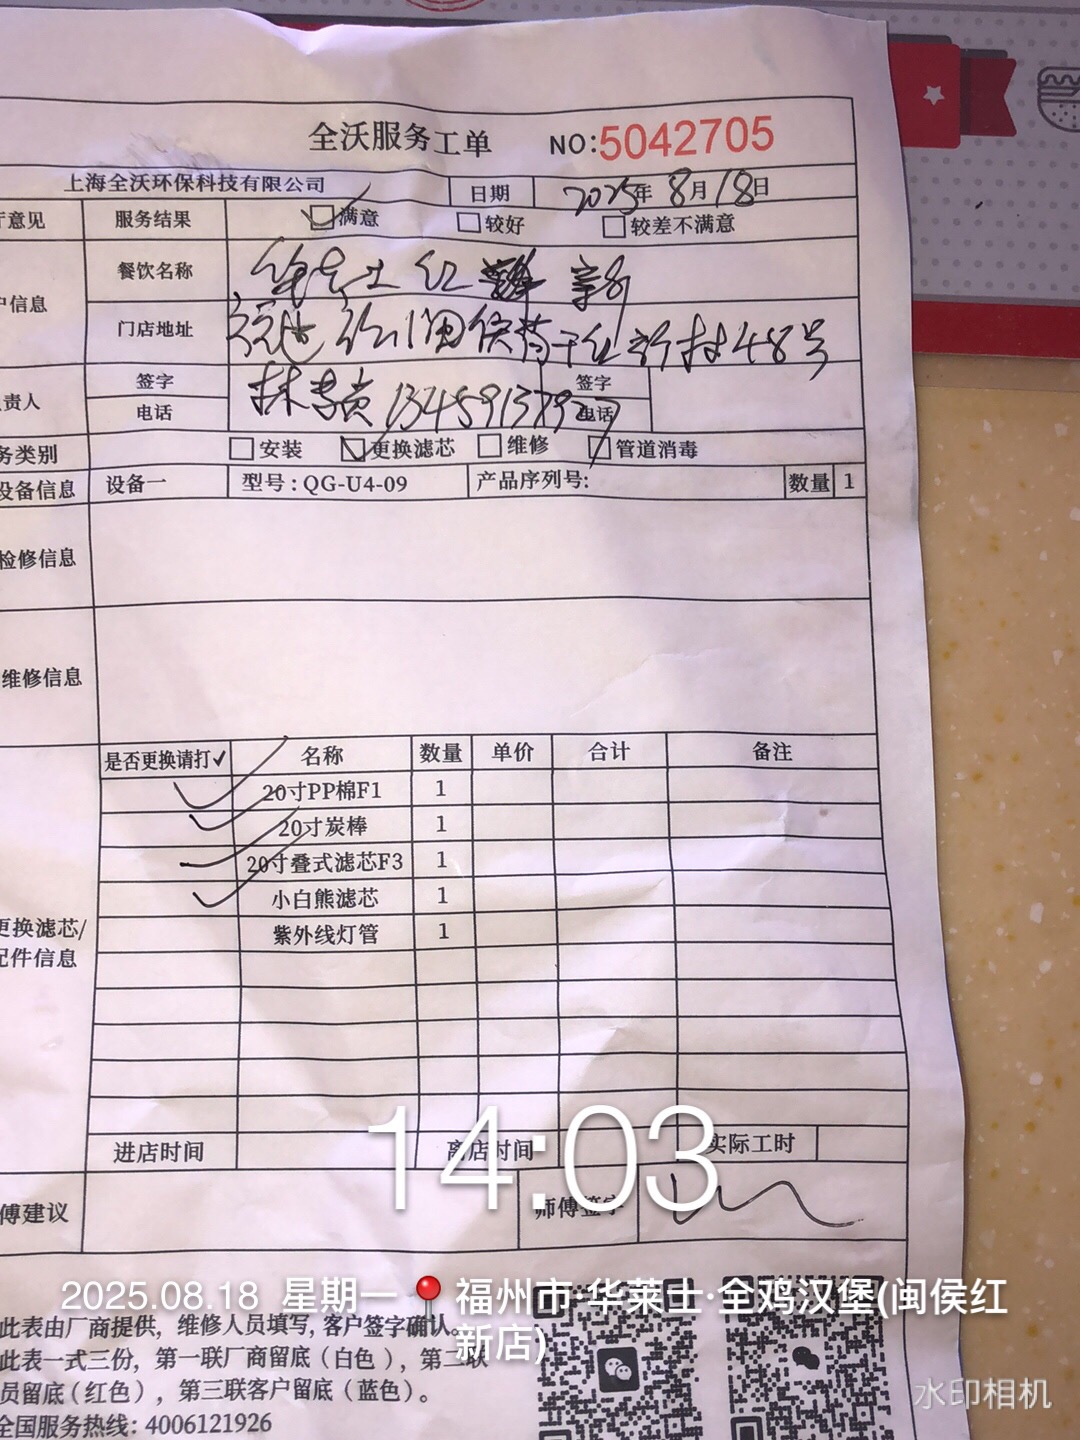 全沃服务工单 NO:5042705
上海全沃环保科技有限公司 日期 2025年8月18日
厅意见 服务结果 满意 较好 较差不满意
户信息 餐饮名称 华莱士 红 新
门店地址 福建 闽侯 新村48号
责人 签字 林 签字
电话 13459137927 电话
务类别 安装 更换滤芯 维修 管道消毒
设备信息 设备一 型号:QG-U4-09 产品序列号: 数量 1
检修信息
维修信息
是否更换请打✓ 名称 数量 单价 合计 备注
✓ 20寸PP棉F1 1
✓ 20寸炭棒 1
✓ 20寸叠式滤芯F3 1
✓ 小白熊滤芯 1
紫外线灯管 1
更换滤芯/
配件信息
进店时间 离店时间 实际工时
14:03
傅建议 师傅签字
2025.08.18 星期一 福州市·华莱士·全鸡汉堡(闽侯红
新店)
此表由厂商提供, 维修人员填写, 客户签字确认。
此表一式三份, 第一联厂商留底(白色), 第二联
员留底(红色), 第三联客户留底(蓝色)。
全国服务热线: 4006121926
水印相机